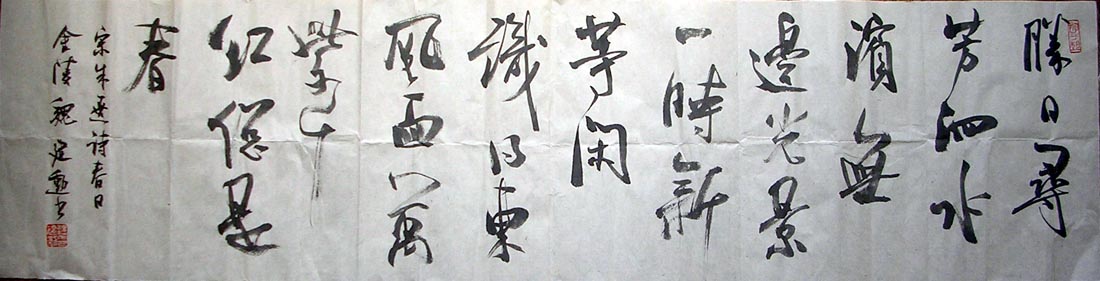 勝日尋
芳泗水
濱無
邊光景
一時新
等閑
識得東
風面萬
紫千
紅總是
春
宋朱熹詩春日
金陵魏定勳書